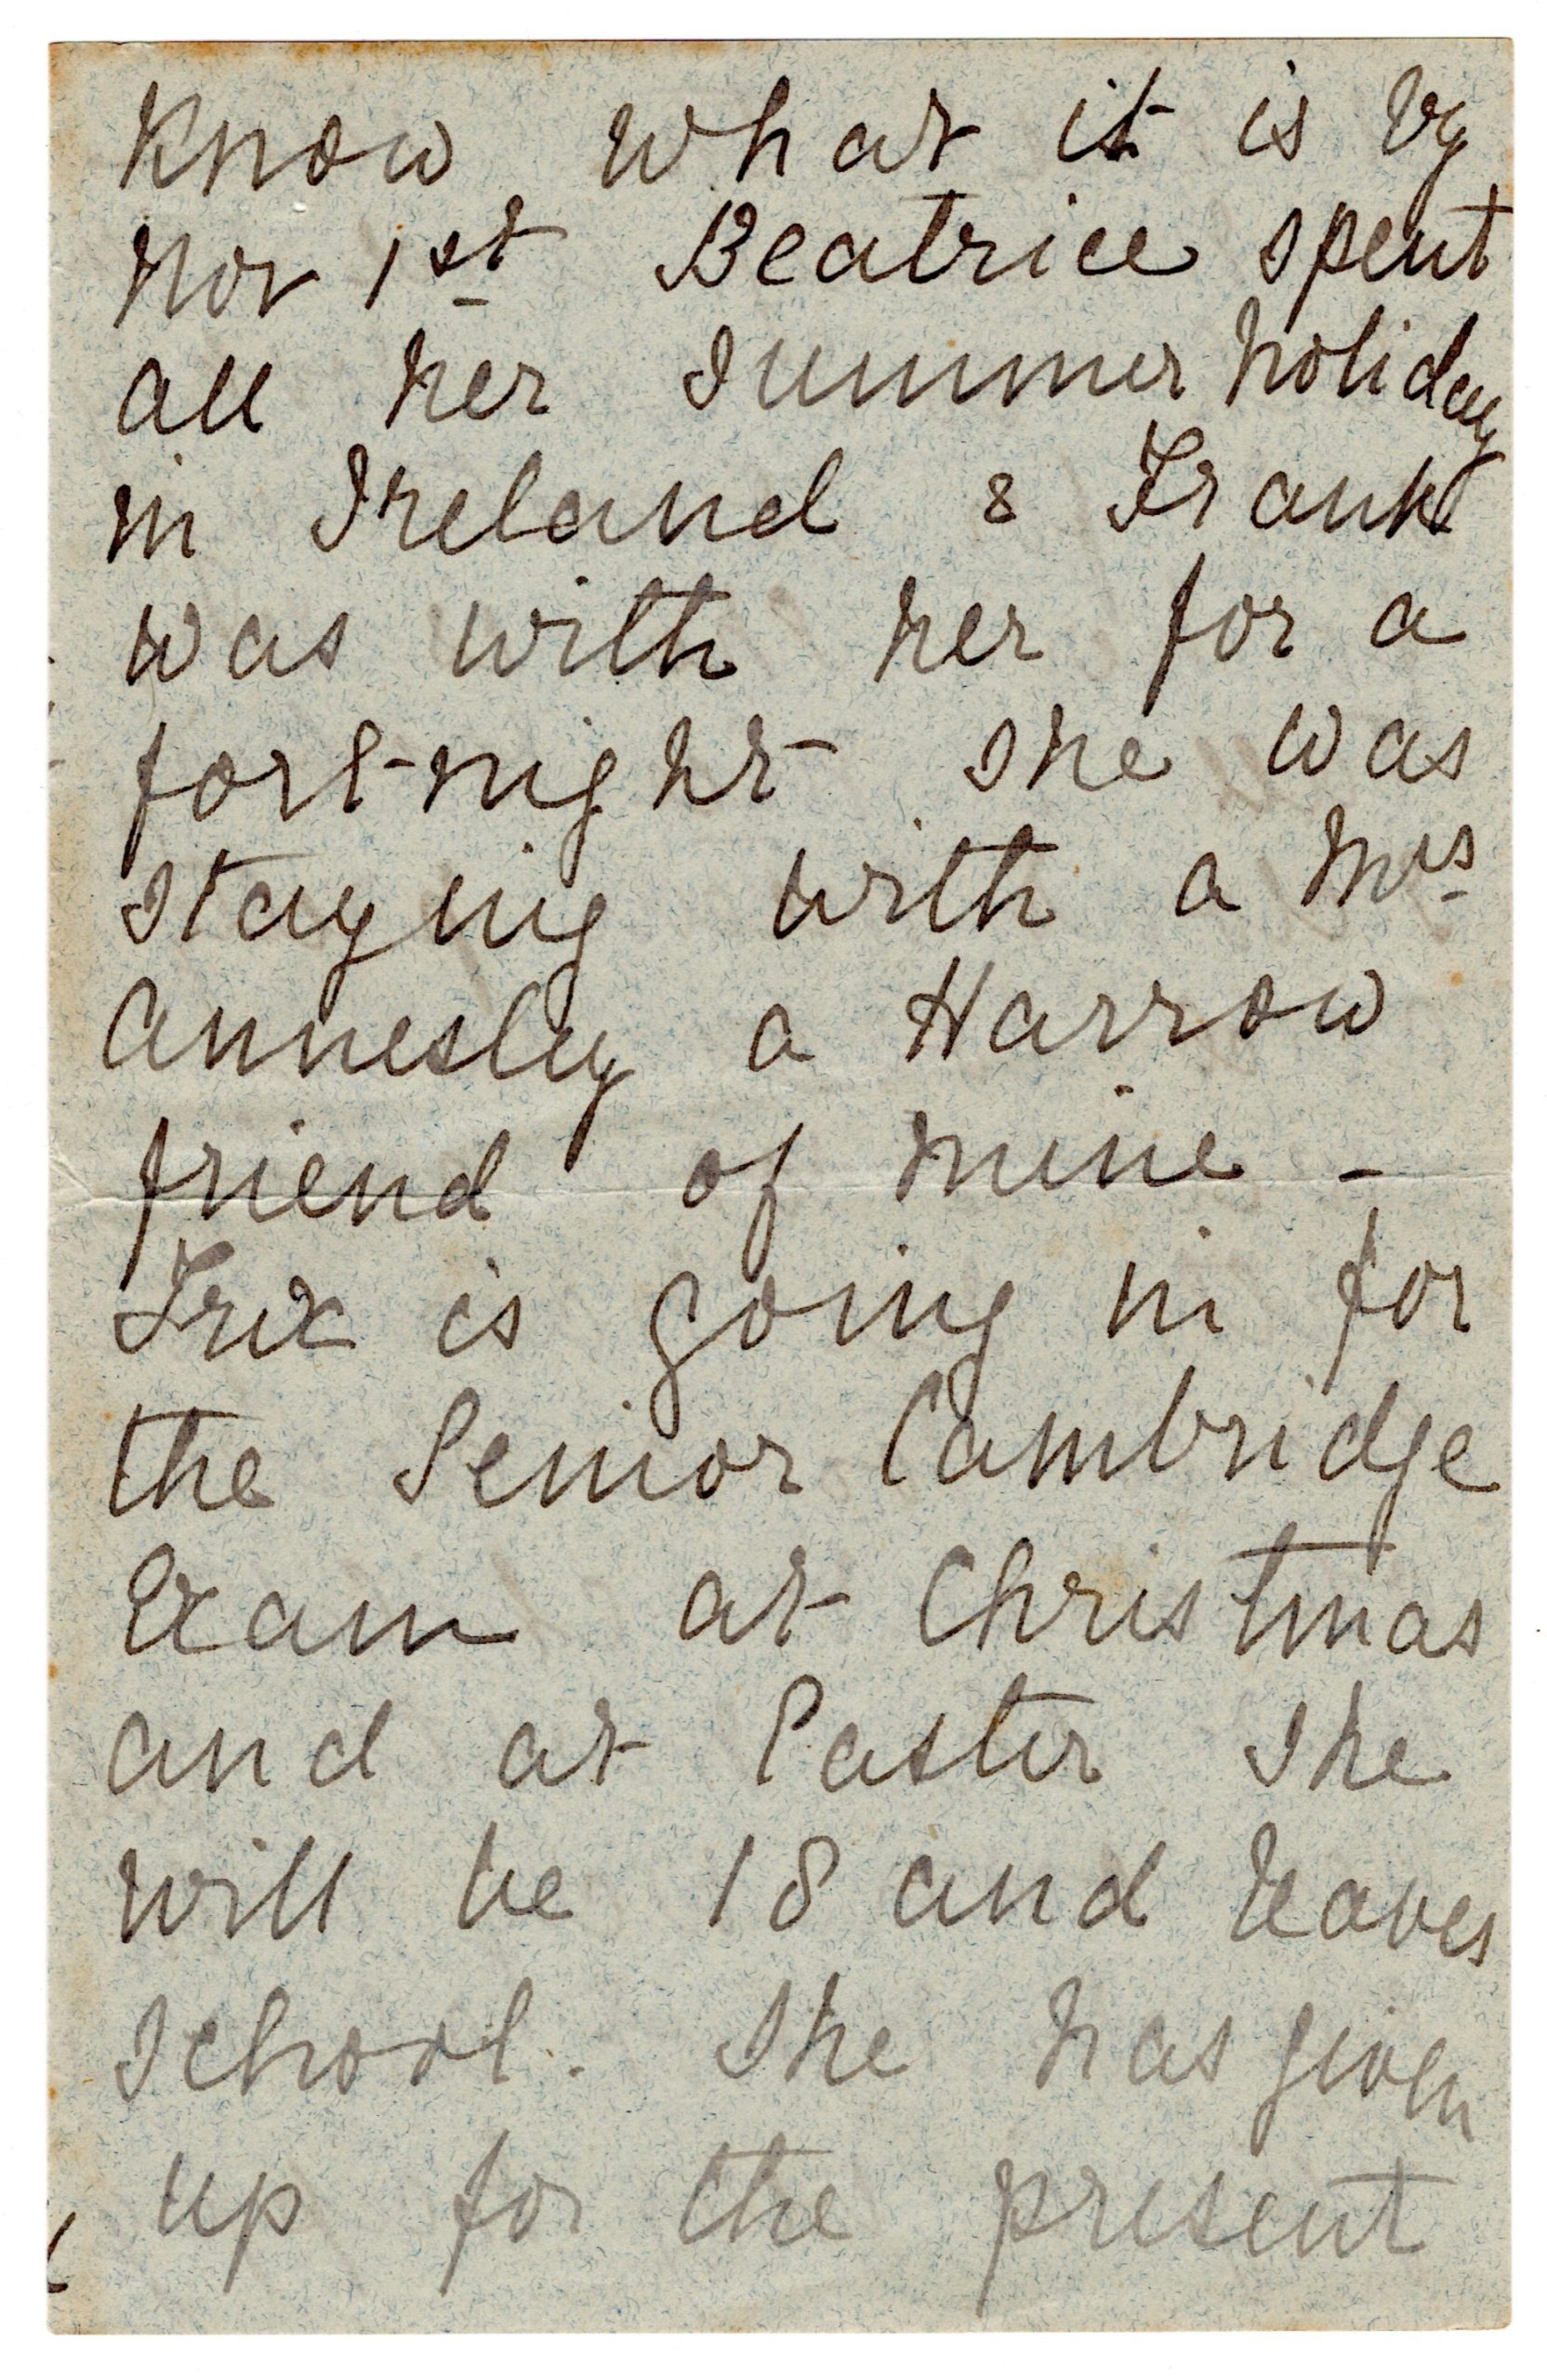 know what it is by
Nov 1st Beatrice spent
all her summer holiday
in Ireland & Frank
was with her for a
fort-night she was
staying with a Mrs
Annesley a Harrow
friend of mine -
Trix is going in for
the Senior Cambridge
Exam at Christmas
and at Easter she
will be 18 and leaves
school. She has given
up for the present